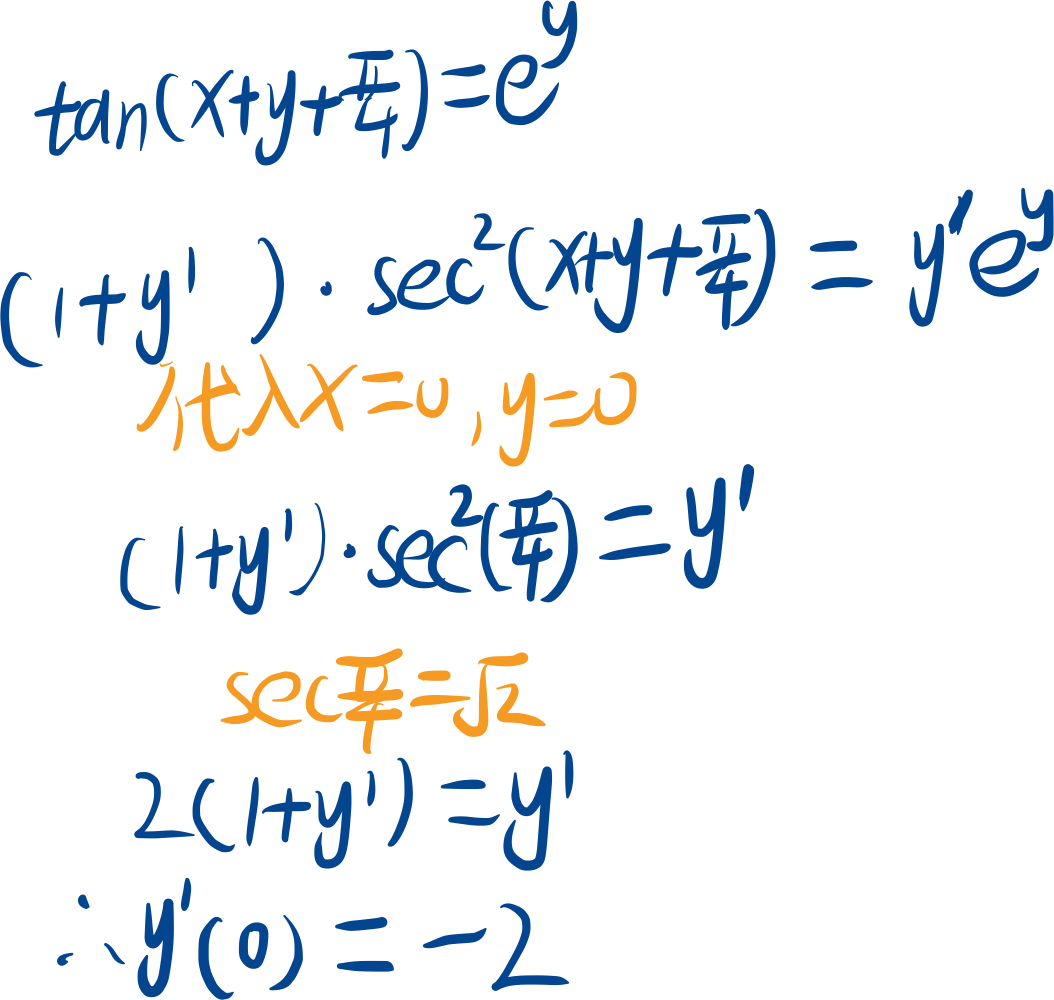 tan(x+y+π/4)=e^y
(1+y')·sec²(x+y+π/4)=y'e^y
代入x=0,y=0
(1+y')·sec²(π/4)=y'
secπ/4=√2
2(1+y')=y'
∴y'(0)=-2